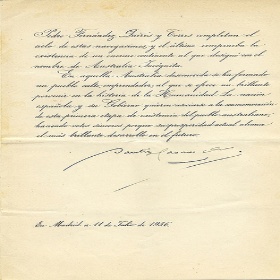 Pedro Fernández Quirós y Torres completan el
ciclo de estas navegaciones, y el último comprueba la
existencia de un nuevo continente al que designó con el
nombre de Australia-Incógnita.
En aquella Australia desconocida se ha formado
un pueblo culto, emprendedor, al que se ofrece un brillante
porvenir en la historia de la Humanidad. La nación
española y su Gobierno quieren asociarse a la conmemoración
de esta primera etapa de existencia del pueblo australiano,
haciendo votos sinceros porque su prosperidad actual alcance
el más brillante desarrollo en el futuro.
En Madrid a 11 de Febro de 1936.